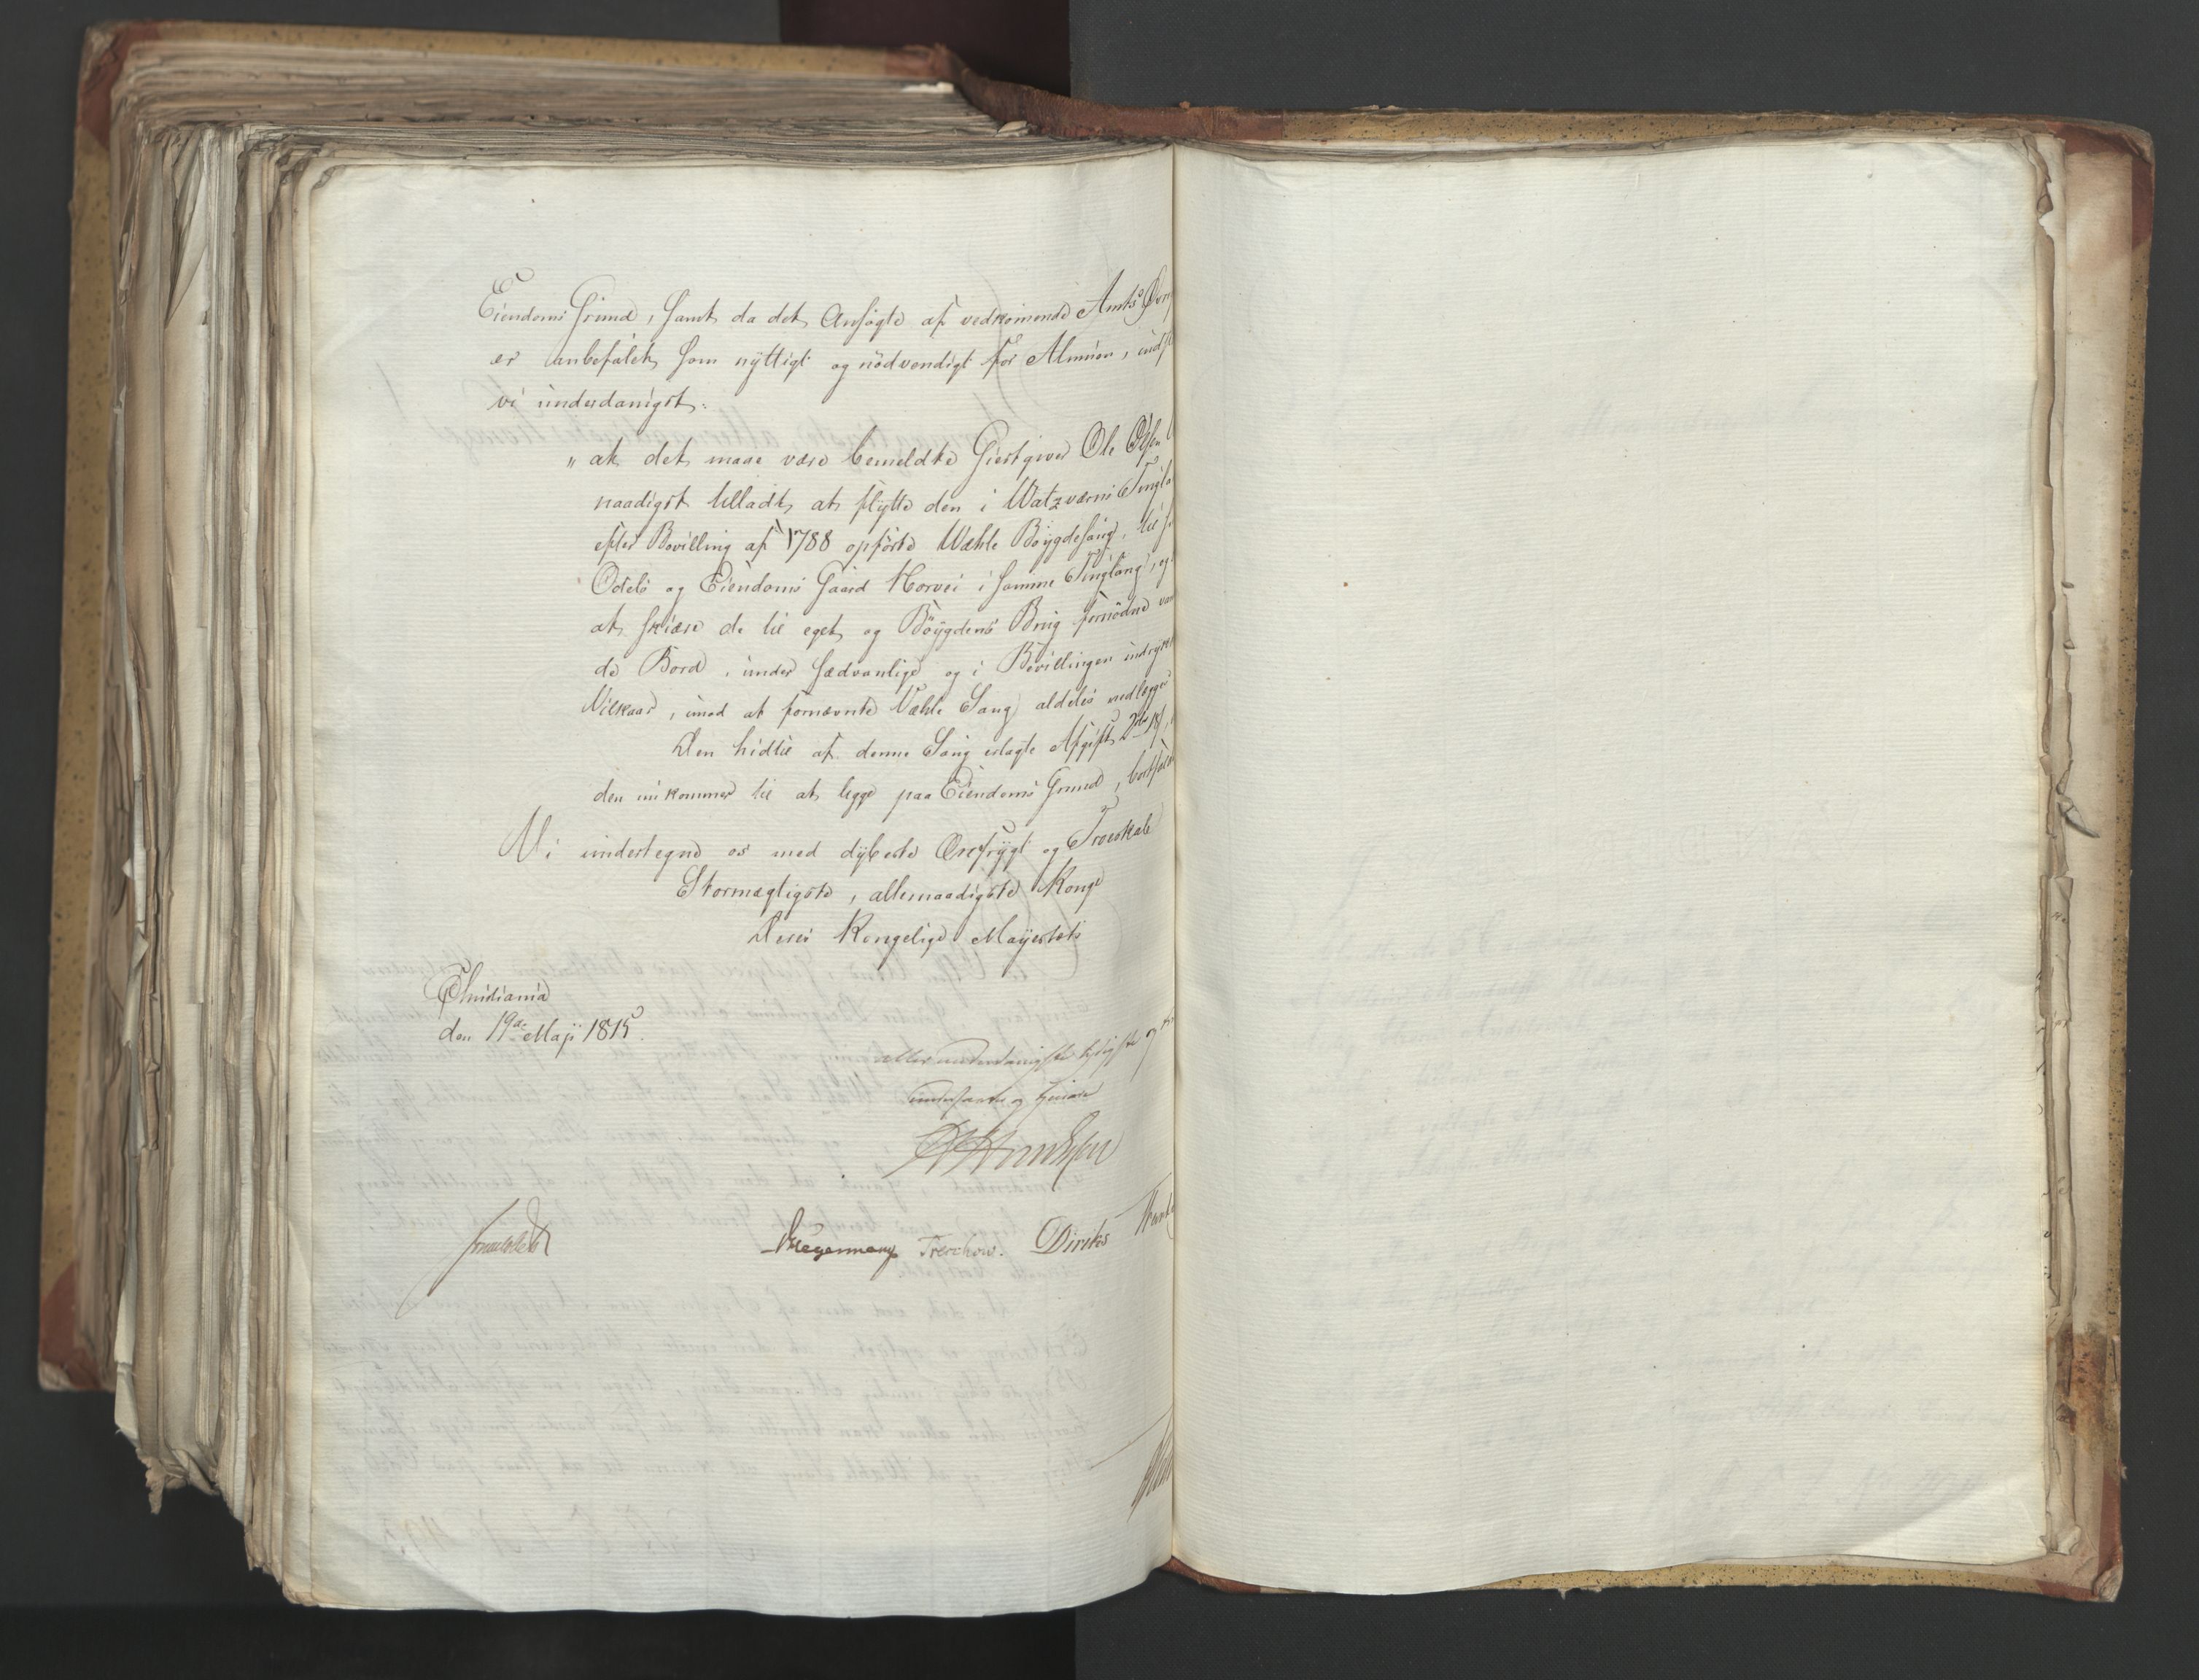 Eiendoms Grund, samt da det Ansøgte af vedkommende Amts
er anbefalet som nyttigt og nödvendigt for Almuen, ind
vi underdanigst:
"at det maae være bemeldte Giestgiver Ole Olsen
naadigst tilladt, at flytte den i Watzværns Tingla
efter Bevilling af 1788 opförte Wæhle Böygdesaug, til
Odels og Eiendoms Gaard Horvei i samme Tinglaug, og
at skiære de til eget og Böygdens Brug fornödne
de Bord, under sædvanlige og i Bevillingen indryk
Vilkaar, imod at fornævnte Væhle Saug aldeles nedlegges
Den hidtil af denne Saug erlagte Afgift
den nu kommer til at legge paa Eiendoms Grund, bortfal
Vi undertegne os med dybeste Ærefrygt og Troeskab
Stormægtigste, allernaadigste Konge
Deres Kongelige Mayestets
Christiania
den 19de Maji 1815.
allerunderdanigste
undersaatter og tienere
Treschow. Diriks